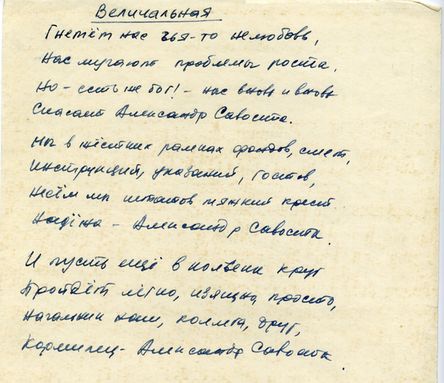 Величальная
Гнетёт нас чья-то нелюбовь,
Нас мучают проблемы роста,
Но - есть же бог! - нас вновь и вновь
Спасает Александр Савостa.
Мы в жёстких рамках фондов, смет,
Инструкций, указаний, Гостов,
Несём мы штатов тяжкий крест.
Надёжа - Александр Савоста.
И пусть ещё в коленьи круг
Пройдёт легко, изящно, просто,
Начальник наш, коллега, друг,
Кормилец - Александр Савоста.